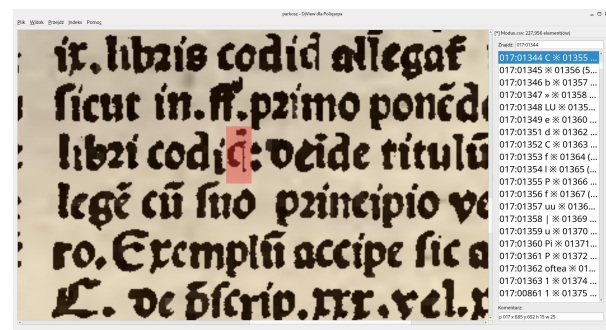 parkosz - DjView dla Poliqarpa
Plik Widok Przejdź Indeks Pomoc
ix. libris codicī allegat
sicut in. ff. primo ponēdo
libri codic̄: deide titulū
legē cū suo principio ve
ro. Exemplū accipe sic a
L. de dscrip. xxx. vel. p
[*] Modus.csv: 227,956 element(ów)
Znajdź: 017:01344
017:01344 C ※ 01355 ...
017:01345 ※ 01356 (5...
017:01346 b ※ 01357 ...
017:01347 » ※ 01358 ...
017:01348 LU ※ 0135...
017:01349 e ※ 01360 ...
017:01351 d ※ 01362 ...
017:01352 C ※ 01363 ...
017:01353 f ※ 01364 (...
017:01354 l ※ 01365 (...
017:01355 P ※ 01366 ...
017:01356 f ※ 01367 (...
017:01357 uu ※ 0136...
017:01358 | ※ 01369 ...
017:01359 u ※ 01370 ...
017:01360 Pi ※ 01371...
017:01361 P ※ 01372 ...
017:01362 oftea ※ 01...
017:01363 1 ※ 01374 ...
017:00861 1 ※ 01375 ...
Komentarz:
p 017 x 685 y 652 h 15 w 25